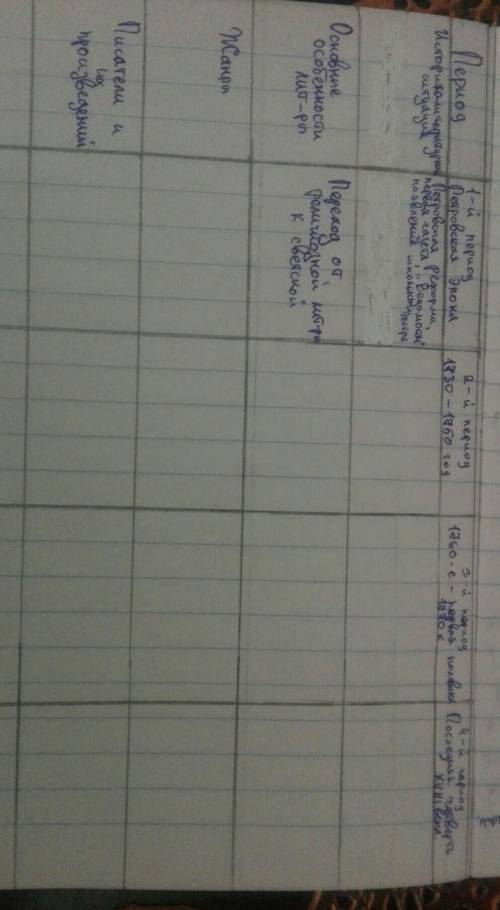 Период
1-й период
Петровская эпока
2-й период
1730-1750 год
3-й период
1760-е - первая половина
1770х
4-й период
Последняя четверть
XVIII века
Историколитературная
ситуация
Петровская реформа,
первая газета, "Ведомости"
появление школьного театра
Основные
особенности
лит-ры
Переход от
религиозной лит-ры
к светской
Жанры
Писатели и
их
произведений